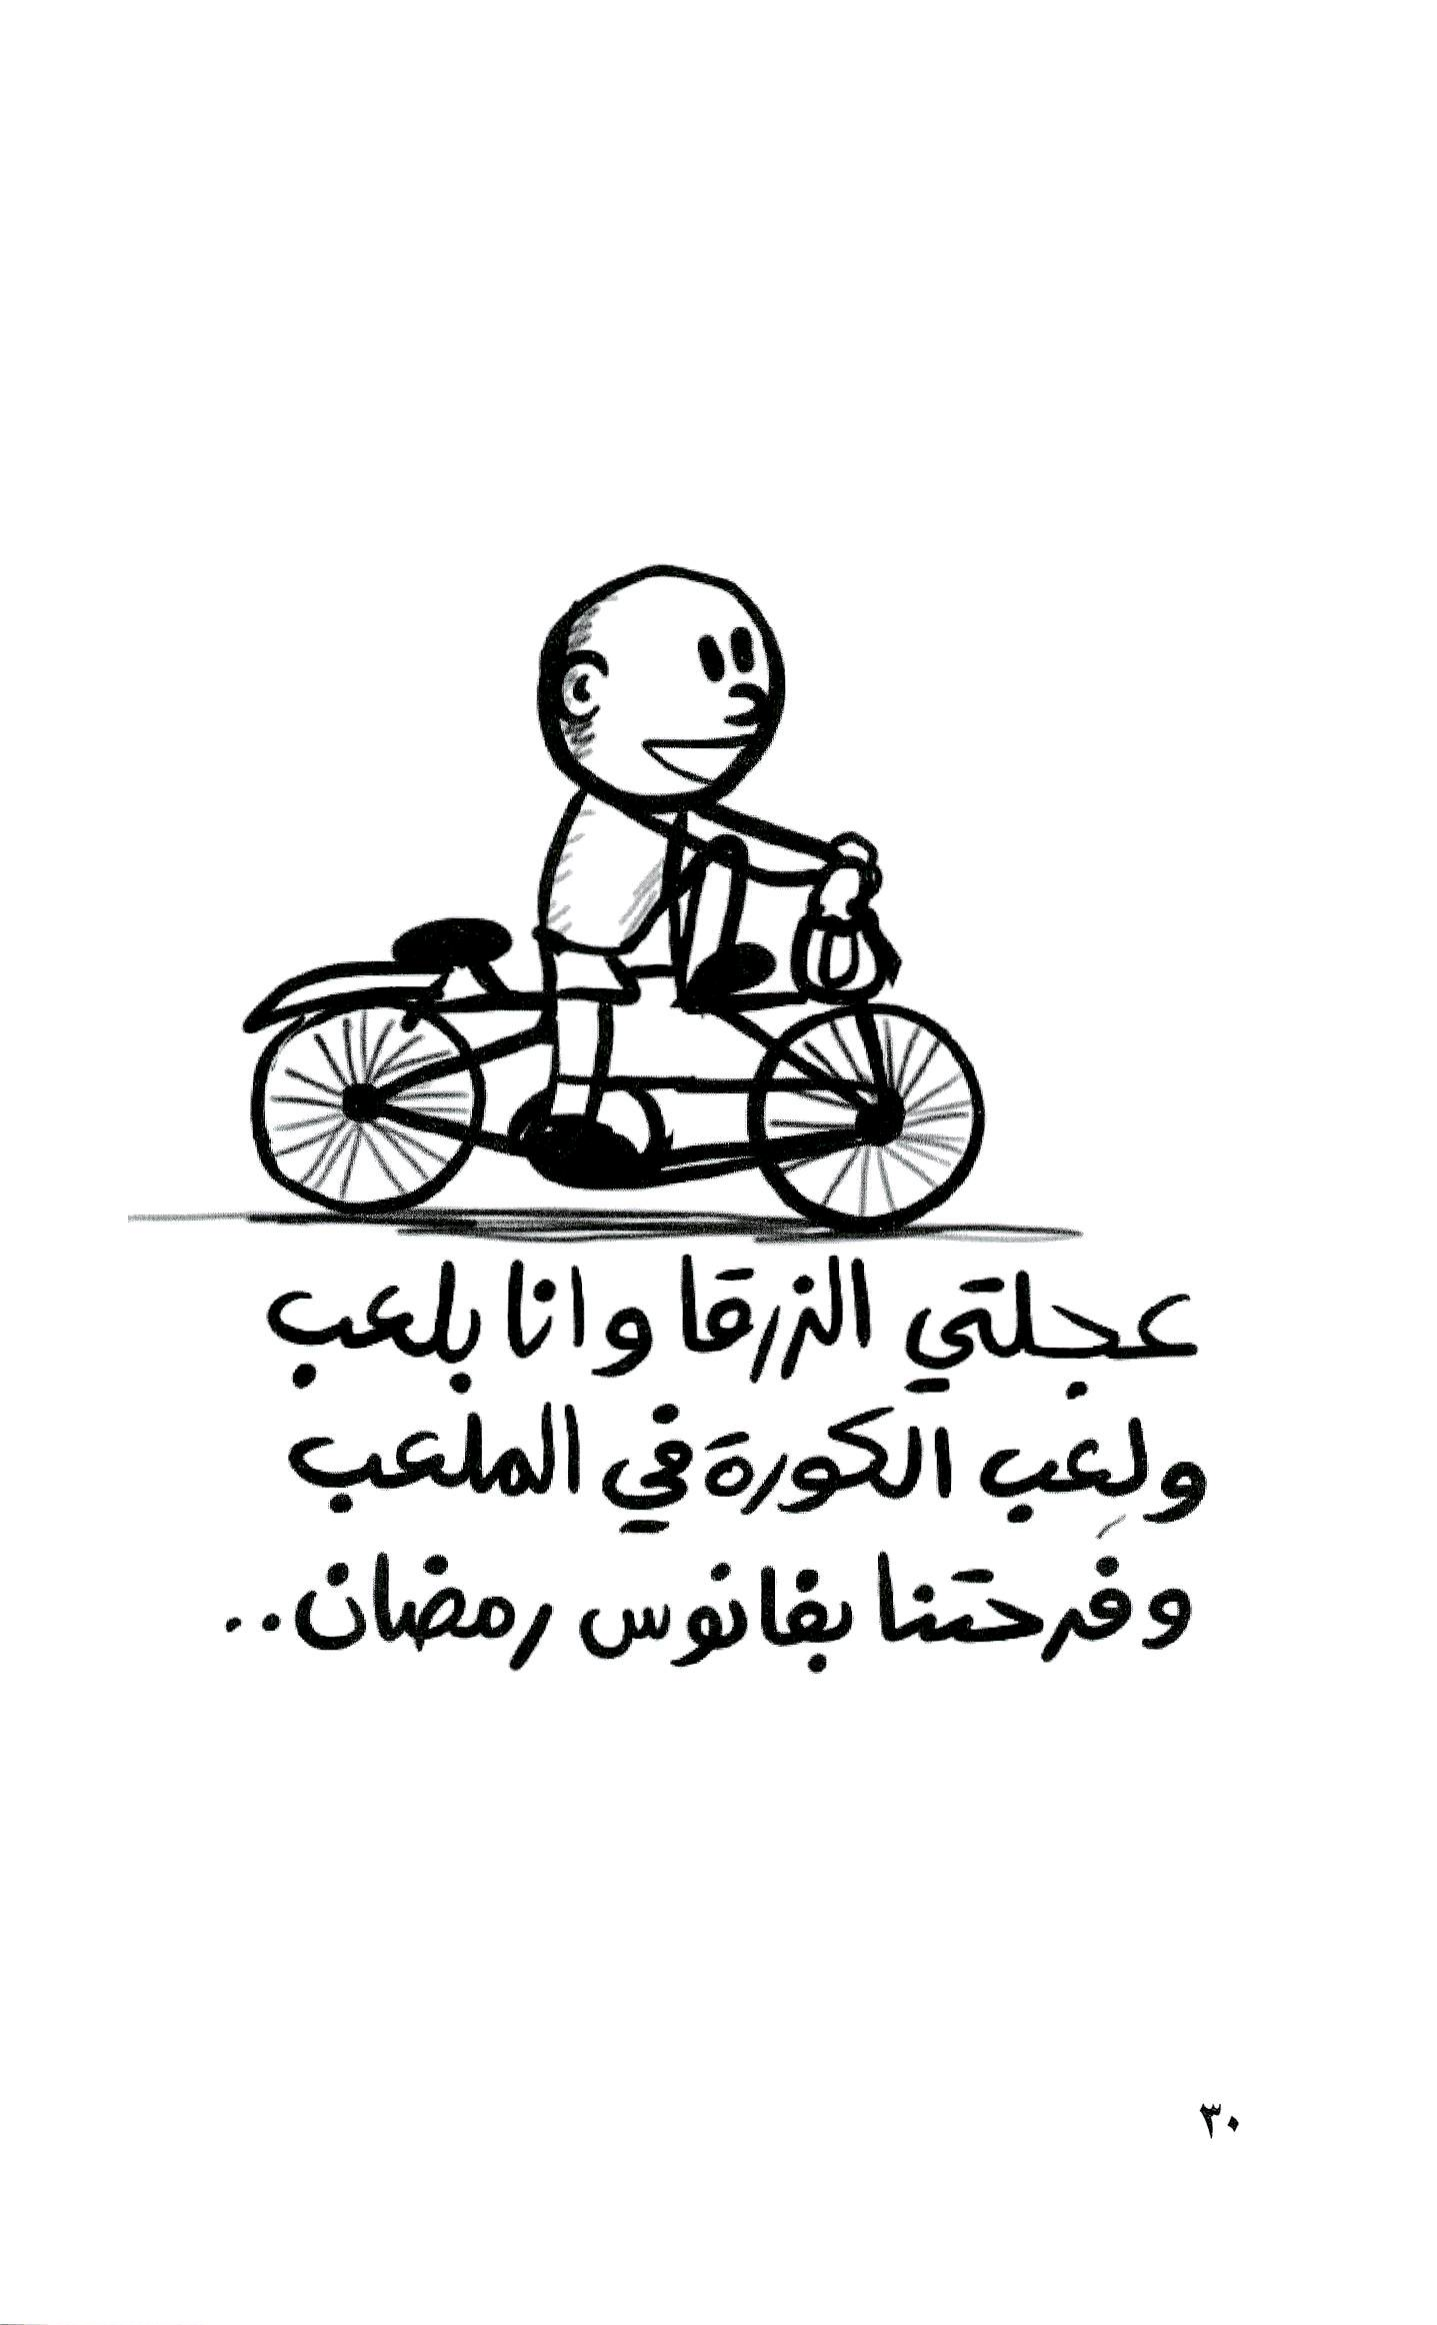 عجلتي الزرقا وانا بلعب
ولِعب الكورة في الملعب
وفرحتنا بفانوس رمضان..
٣٠